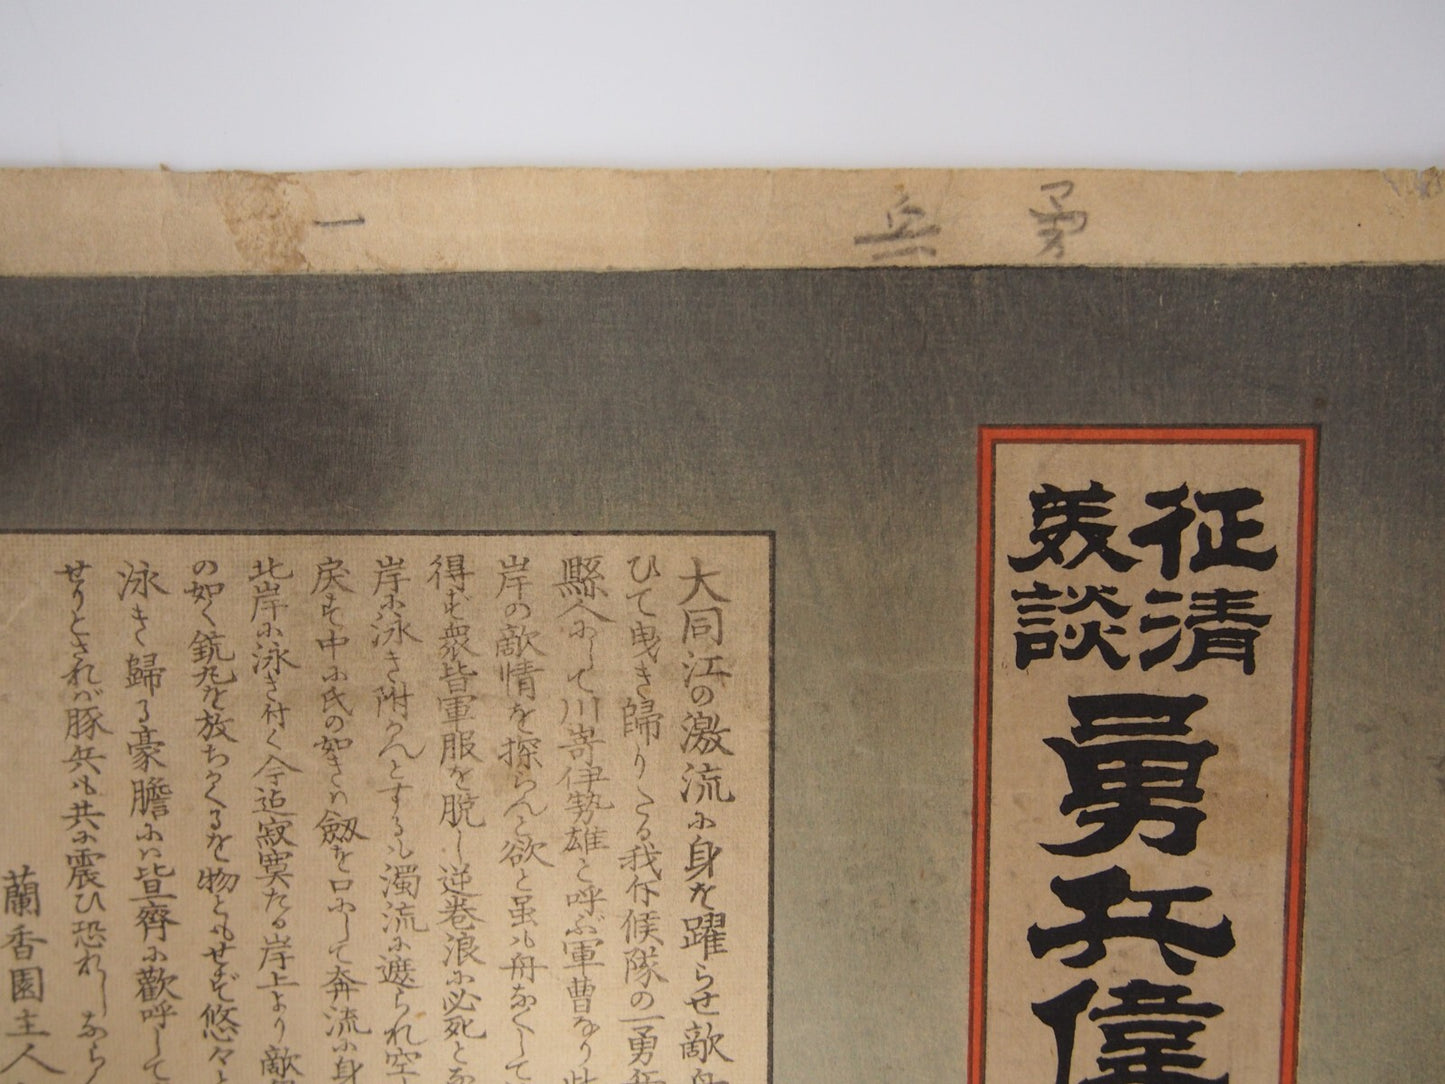 勇兵
一
征清
美談
勇兵偉
大同江の激流に身を躍らせ敵舟
ひて曳き歸りたる我斥候隊の一勇兵
縣人にして川嵜伊勢雄と呼ぶ軍曹なり此
岸の敵情を探らんと欲と虽も舟なくして
得ず衆皆軍服を脱し逆巻浪に必死とな
岸に泳き附かんとするも濁流に遮られ空
戻す中に氏の如きハ劔を口にして奔流に身
北岸に泳き付く今迠寂寞たる岸上より敵
の如く銃丸を放ちかくるを物ともせず悠々と
泳き歸る豪膽にハ皆齊に歡呼して
せりとされバ豚兵も共に震ひ恐れしならん
蘭香園主人